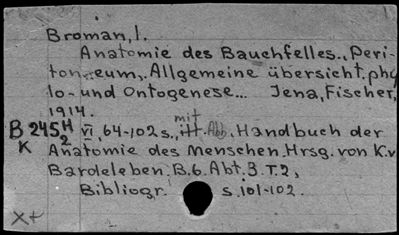 Broman, I.
Anatomie des Bauchfelles., Peri-
toneum,. Allgemeine übersicht, phy
lo- und Ontogenese... Jena, Fischer,
1914.
B 245 H/2 VI, 64-102 s., mit Abb. Handbuch der
K Anatomie des Menschen. Hrsg. von K.v.
Bardeleben. B.6. Abt. 3. T.2,
Bibliogr. s. 101-102.
X+